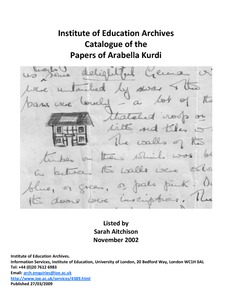 Institute of Education Archives
Catalogue of the
Papers of Arabella Kurdi
delightful German
were untouched by
were lovely - a lot of the
thatched roofs
The walls of the
on them which was
the walls were
blue, or green, or pink
the doors were inscriptions.
Listed by
Sarah Aitchison
November 2002
Institute of Education Archives,
Information Services, Institute of Education, University of London, 20 Bedford Way, London WC1H 0AL
Tel: +44 (0)20 7612 6983
Email: arch.enquiries@ioe.ac.uk
http://www.ioe.ac.uk/services/4389.html
Published 27/03/2009